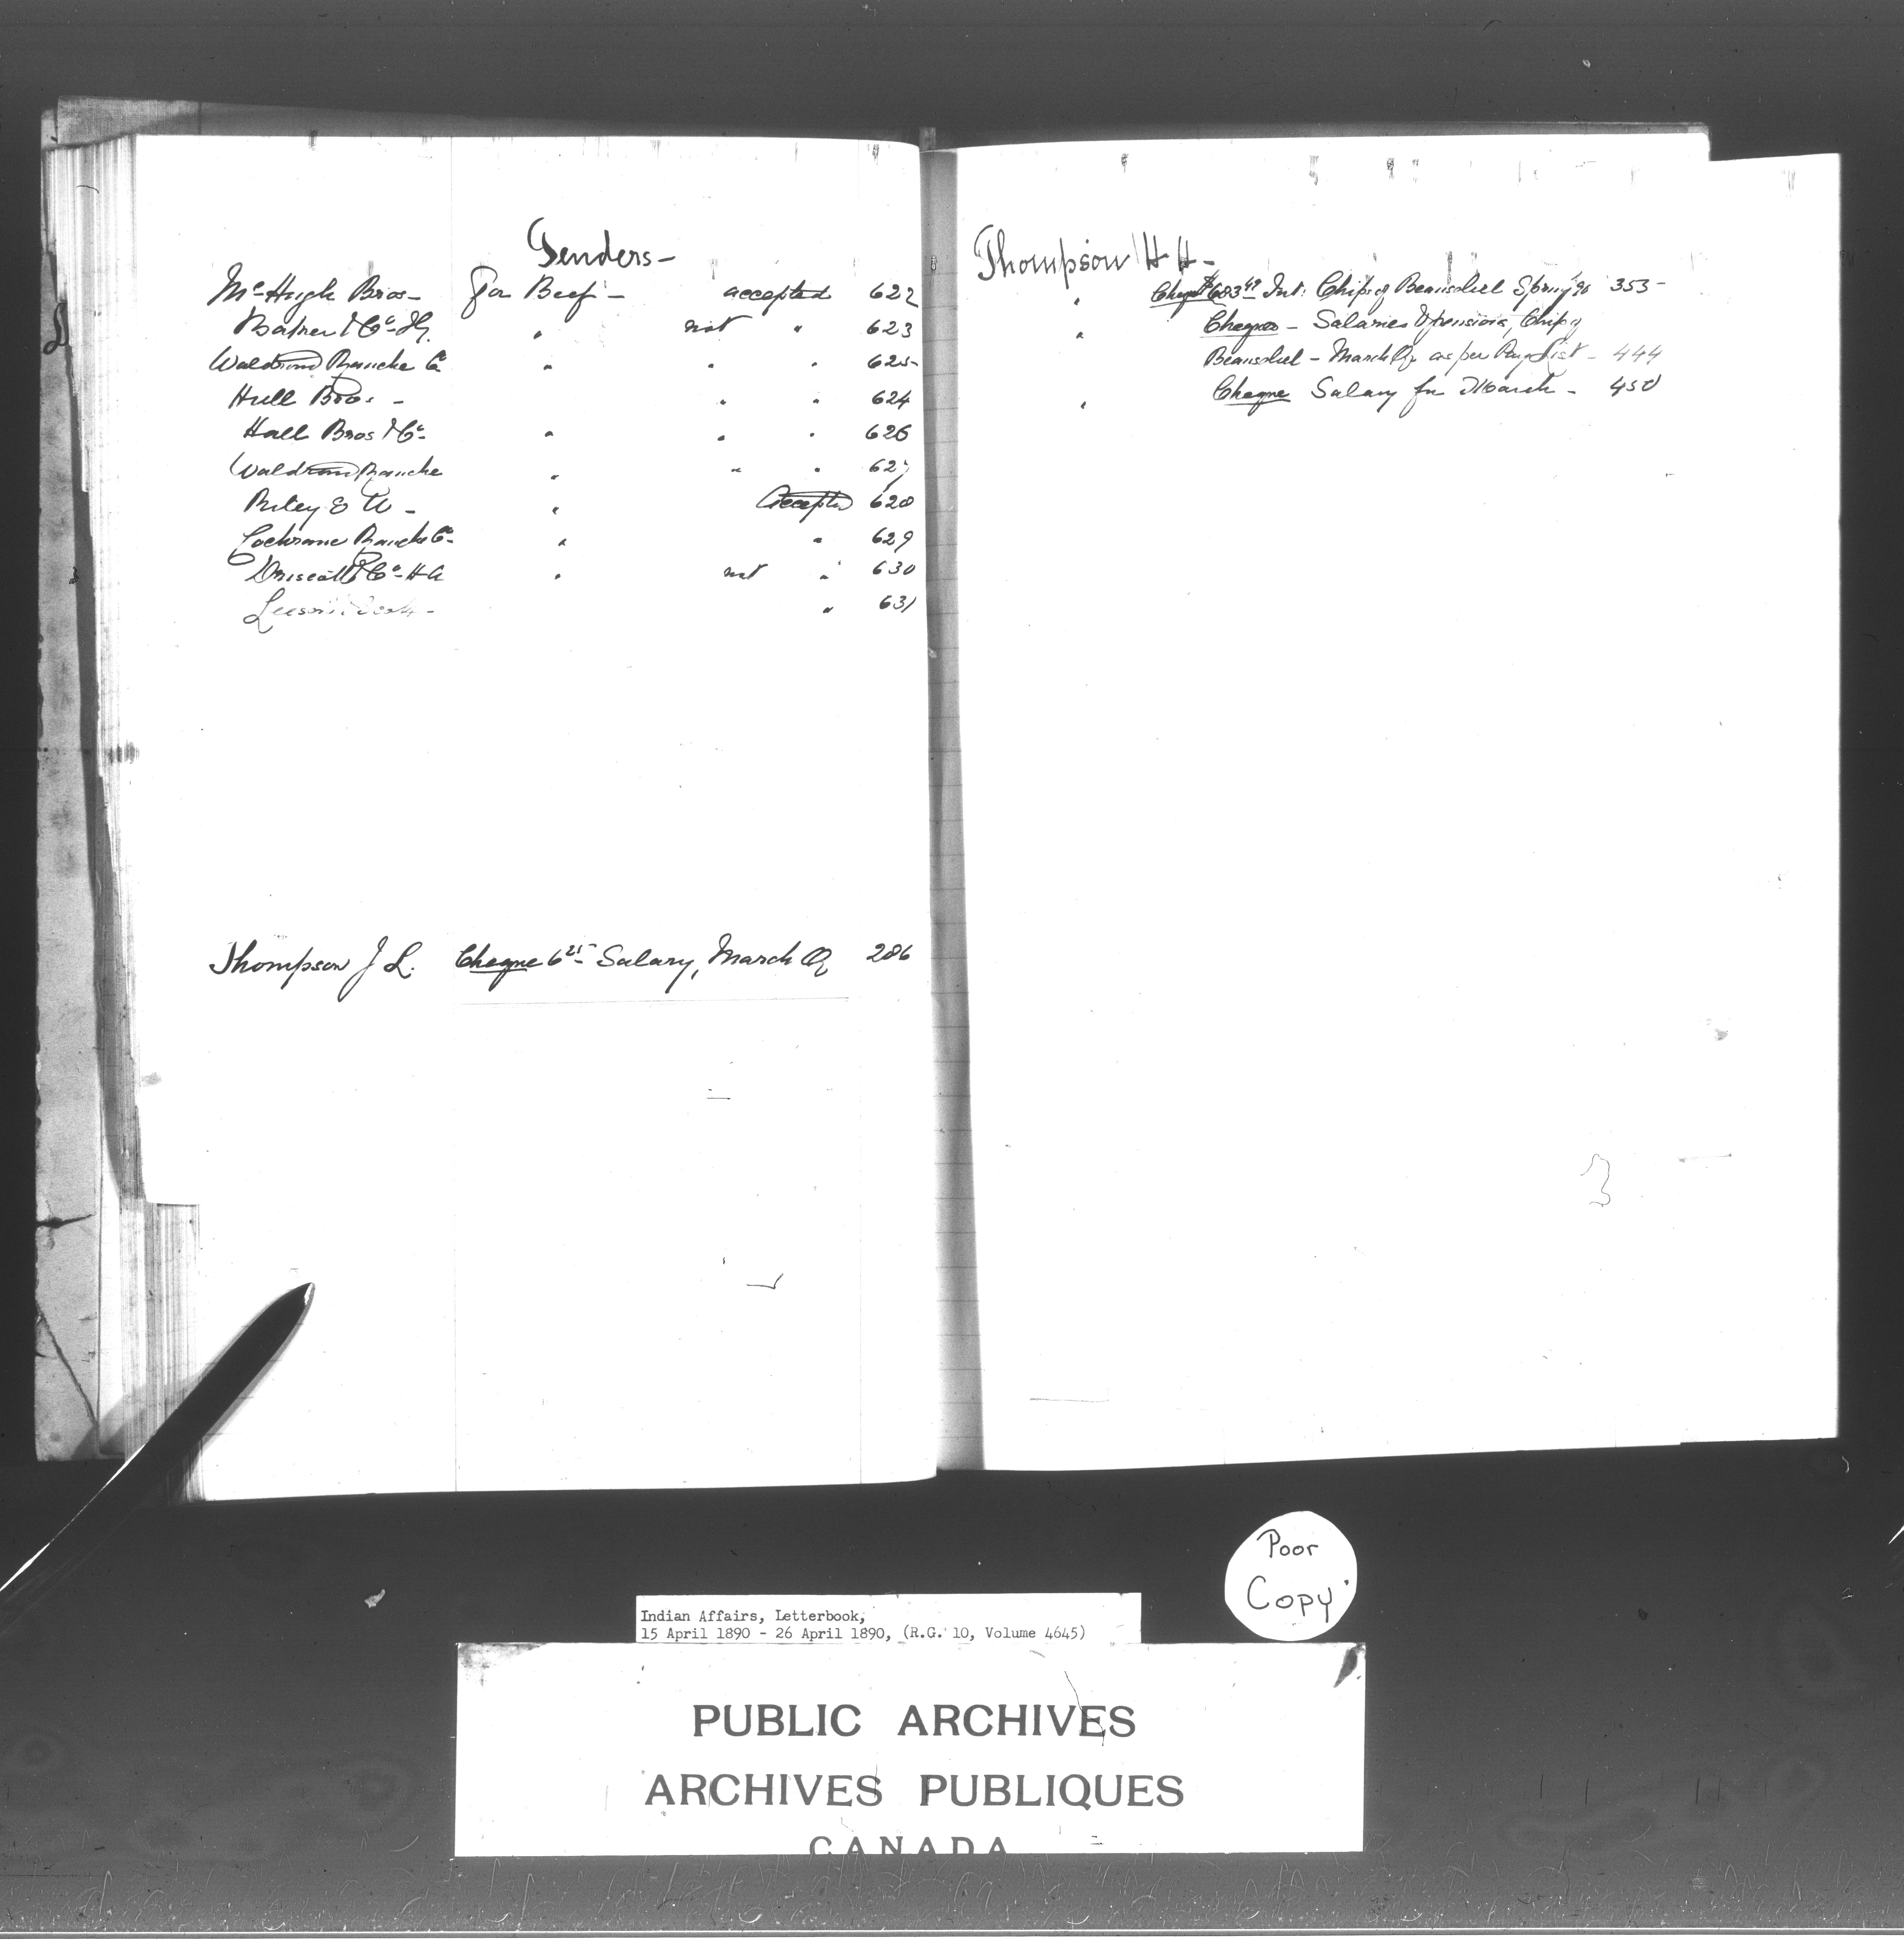 Tenders -
McHugh Bros - For Beef - accepted 622
& Co. - I.G. " not " 623
Waldrond Ranche Co " " " 625
Hull Bros - " " 624
Hall Bros & Co - " " " 626
Waldrond Ranche " " " 627
Riley E W - " Accepted 628
Cochrane Ranche Co - " " 629
Driscoll & Co - H A " not " 630
Leeson & Scott - " 631
Thompson J L. Cheque 6 25 Salary, March Q 286
Thompson H H -
" Cheque $683 49 Int: Chips of Beausoliel Spring '90 353 -
" Cheques - Salaries & pensions, Chips of
Beausoliel - March Qr as per Pay List - 444
" Cheque Salary for March - 450
3
L
Poor
Copy
Indian Affairs, Letterbook,
15 April 1890 - 26 April 1890, (R.G. 10, Volume 4645)
PUBLIC ARCHIVES
ARCHIVES PUBLIQUES
CANADA